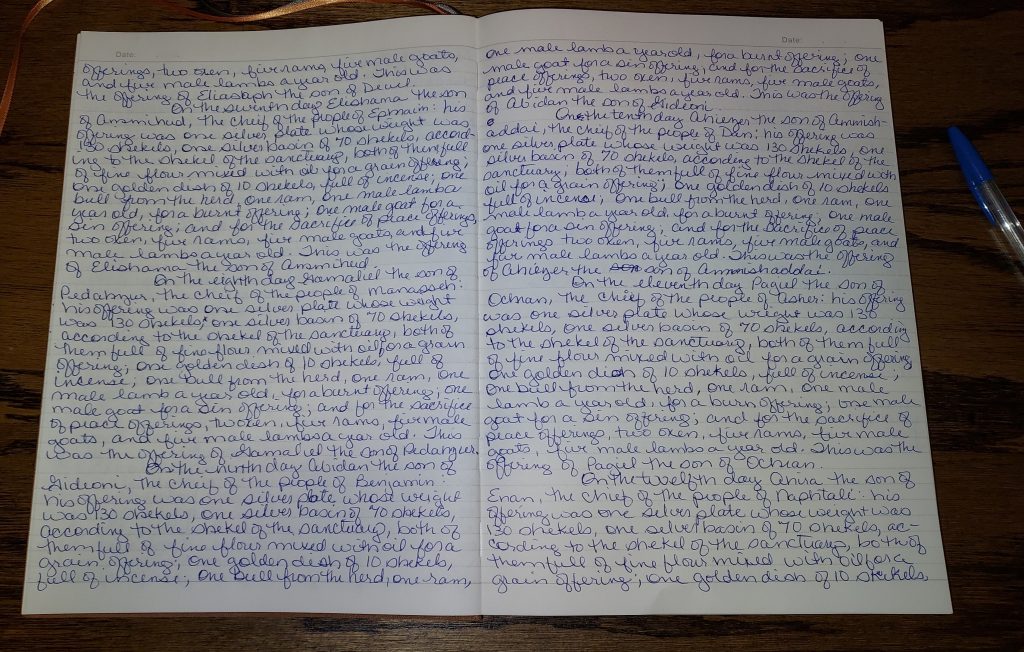 Date:
offerings, two oxen, five rams, five male goats,
and five male lambs a year old. This was
the offering of Eliasaph the son of Deuel.
On the seventh day Elishama the son
of Ammihud, the chief of the people of Ephraim: his
offering was one silver plate whose weight was
130 shekels, one silver basin of 70 shekels, accord-
ing to the shekel of the sanctuary, both of them full
of fine flour mixed with oil for a grain offering;
one golden dish of 10 shekels, full of incense; one
bull from the herd, one ram, one male lamb a
year old, for a burnt offering; one male goat for a
sin offering; and for the sacrifice of peace offerings,
two oxen, five rams, five male goats, and five
male lambs a year old. This was the offering
of Elishama the son of Ammihud.
On the eighth day Gamaliel the son of
Pedahzur, the cheif of the people of Manasseh:
his offering was one silver plate whose weight
was 130 shekels, one silver basin of 70 shekels,
according to the shekel of the sanctuary, both of
them full of fine flour, mixed with oil for a grain
offering; one golden dish of 10 shekels, full of
incense; one bull from the herd, one ram, one
male lamb a year old, for a burnt offering; one
male goat for a sin offering; and for the sacrifice
of peace offerings, two oxen, five rams, five male
goats, and five male lambs a year old. This
was the offering of Gamaliel the son of Pedahzur.
On the ninth day Abidan the son of
Gideoni, the chief of the people of Benjamin:
his offering was one silver plate whose weight
was 130 shekels, one silver basin of 70 shekels,
according to the shekel of the sanctuary, both of
them full of fine flour mixed with oil for a
grain offering; one golden dish of 10 shekels,
full of incense; one bull from the herd, one ram,
Date:
one male lamb a year old, for a burnt offering; one
male goat for a sin offering; and for the sacrifice of
peace offerings, two oxen, five rams, five male goats,
and five male lambs a year old. This was the offering
of Abidan the son of Gideoni.
On the tenth day Ahiezer the son of Ammish-
addai, the chief of the people of Dan; his offering was
one silver plate whose weight was 130 shekels, one
silver basin of 70 shekels, according to the shekel of the
sanctuary, both of them full of fine flour mixed with
oil for a grain offering; one golden dish of 10 shekels
full of incense; one bull from the herd, one ram, one
male lamb a year old, for a burnt offering; one male
goat for a sin offering; and for the sacrifice of peace
offerings two oxen, five rams, five male goats, and
five male lambs a year old. This was the offering
of Ahiezer the son son of Ammishaddai.
On the eleventh day Pagiel the son of
Ochran, the chief of the people of Asher: his offering
was one silver plate whose weight was 130
shekels, one silver basin of 70 shekels, according
to the shekel of the sanctuary, both of them full
of fine flour mixed with oil for a grain offering
one golden dish of 10 shekels, full of incense;
one bull from the herd, one ram, one male
lamb a year old, for a burn offering; one male
goat for a sin offering; and for the sacrifice of
peace offerings, two oxen, five rams, five male
goats, five male lambs a year old. This was the
offering of Pagiel the son of Ochran.
On the twelfth day Ahira the son of
Enan, the chief of the people of Naphtali: his
offering was one silver plate whose weight was
130 shekels, one silver basin of 70 shekels, ac-
cording to the shekel of the sanctuary, both of
them full of fine flour mixed with oil for a
grain offering; one golden dish of 10 shekels,